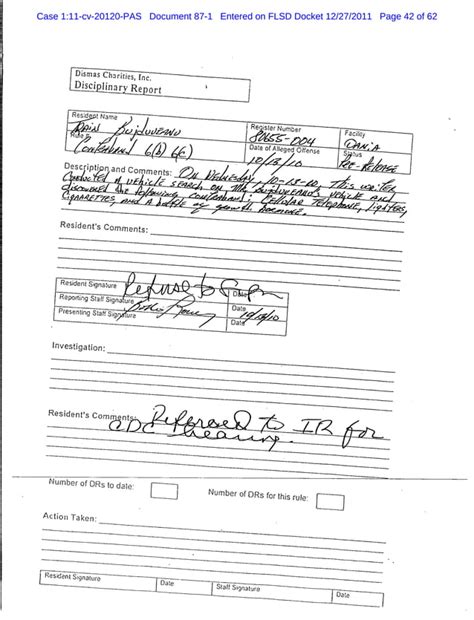 Case 1:11-cv-20120-PAS Document 87-1 Entered on FLSD Docket 12/27/2011 Page 42 of 62
Dismas Charities, Inc.
Disciplinary Report
Resident Name
Register Number
Facility
80655-004
Dania
Rule #
Date of Alleged Offense
Status
Contraband 6(A)
10/13/10
Pre Release
Description and Comments: On Wednesday, 10-13-10, this writer
conducted a vehicle search on Mr. vehicle and
discovered the following contraband; cellular telephone, lighters,
cigarettes, and a bottle of growth hormone.
Resident's Comments:
Resident Signature Refuse to Sign Date
Reporting Staff Signature Date 10/13/10
Presenting Staff Signature Date
Investigation:
Resident's Comments: Refereed to IR for
CDC hearing.
Number of DRs to date:
Number of DRs for this rule:
Action Taken:
Resident Signature Date Staff Signature Date